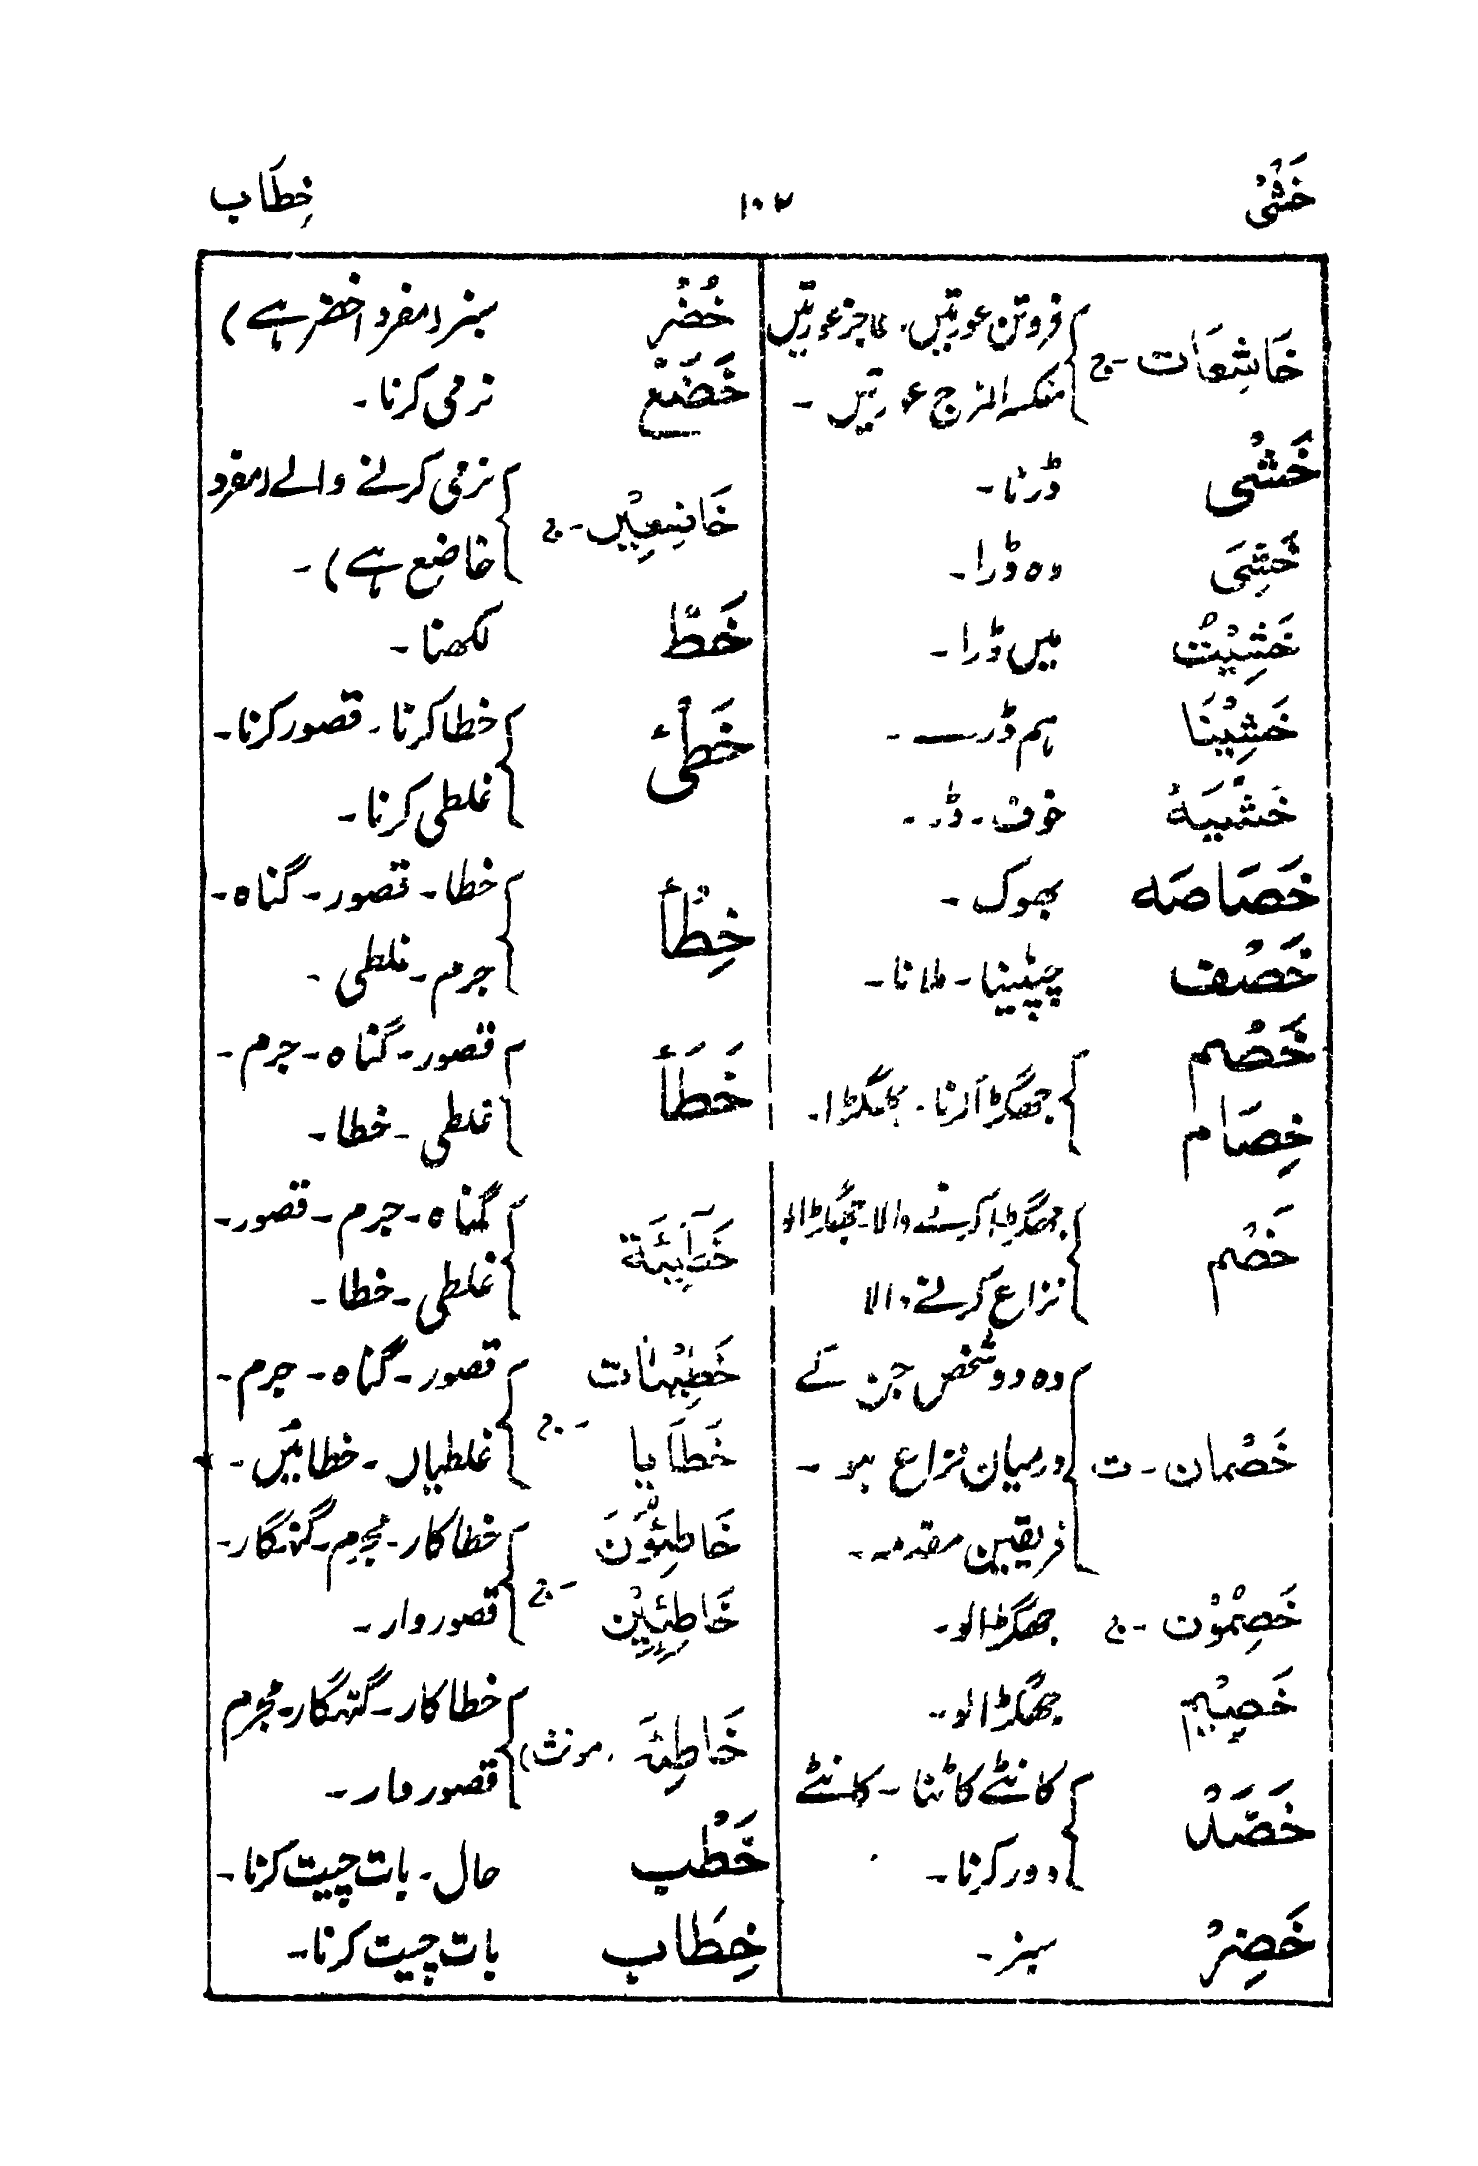 خَشْیٌ ۱۰۲ خِطَاب
خَاشِعَات -ج فروتن عورتیں. عاجز عورتیں
منکسر المزاج عورتیں -
خَشْی ڈرنا -
خَشِیَ وہ ڈرا -
خَشِیْتُ میں ڈرا -
خَشِیْنَا ہم ڈرے -
خَشْیَةُ خوف - ڈر -
خَصَاصَه بھوک -
خَصْف چپٹینا - ملانا -
خَصْم
خِصَام جھگڑا کرنا - جھگڑا -
خَصْم جھگڑا کرنے والا - جھگڑالو
نزاع کرنے والا
خَصْمان - ت وہ دو شخص جن کے
درمیان نزاع ہو -
فریقین مقدمہ -
خَصِمُوْن - ج جھگڑالو -
خَصِیْم جھگڑالو -
خَضَدْ کانٹے کاٹنا - کانٹے
دور کرنا -
خَضِرْ سبز -
خُضْر سبز (مفرد اخضر ہے)
خَضَعْ نرمی کرنا -
خَاضِعِیْن - ج نرمی کرنے والے (مفرد
خاضع ہے) -
خَطّ لکھنا -
خَطْیٔ خطا کرنا - قصور کرنا -
غلطی کرنا -
خِطْأ خطا - قصور - گناہ -
جرم - غلطی -
خَطَأ قصور - گناہ - جرم -
غلطی - خطا -
خَطِیْئَة گناہ - جرم - قصور -
غلطی - خطا -
خَطِیْئَات قصور - گناہ - جرم -
خَطَایا -ج غلطیاں - خطائیں -
خَاطِئُوْنَ خطاکار - مجرم - گنہگار -
خَاطِئِیْن -ج قصوروار -
خَاطِئَه (مونث) خطاکار - گنہگار - مجرم
قصوروار -
خَطْب حال - بات چیت کرنا -
خِطَاب بات چیت کرنا -